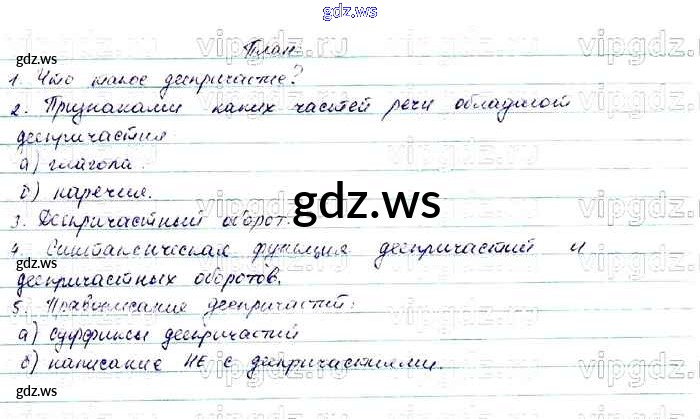 gdz.ws
gdz.ws
План
1. Что такое деепричастие?
gdz.ws
2. Признаками каких частей речи обладают
деепричастия
а) глагола.
б) наречия.
gdz.ws
3. Деепричастный оборот.
4. Синтаксическая функция деепричастий и
gdz.ws
деепричастных оборотов.
5. Правописание деепричастий:
а) суффиксы деепричастий
б) написание НЕ с деепричастиями.
gdz.ws
vipgdz.ru